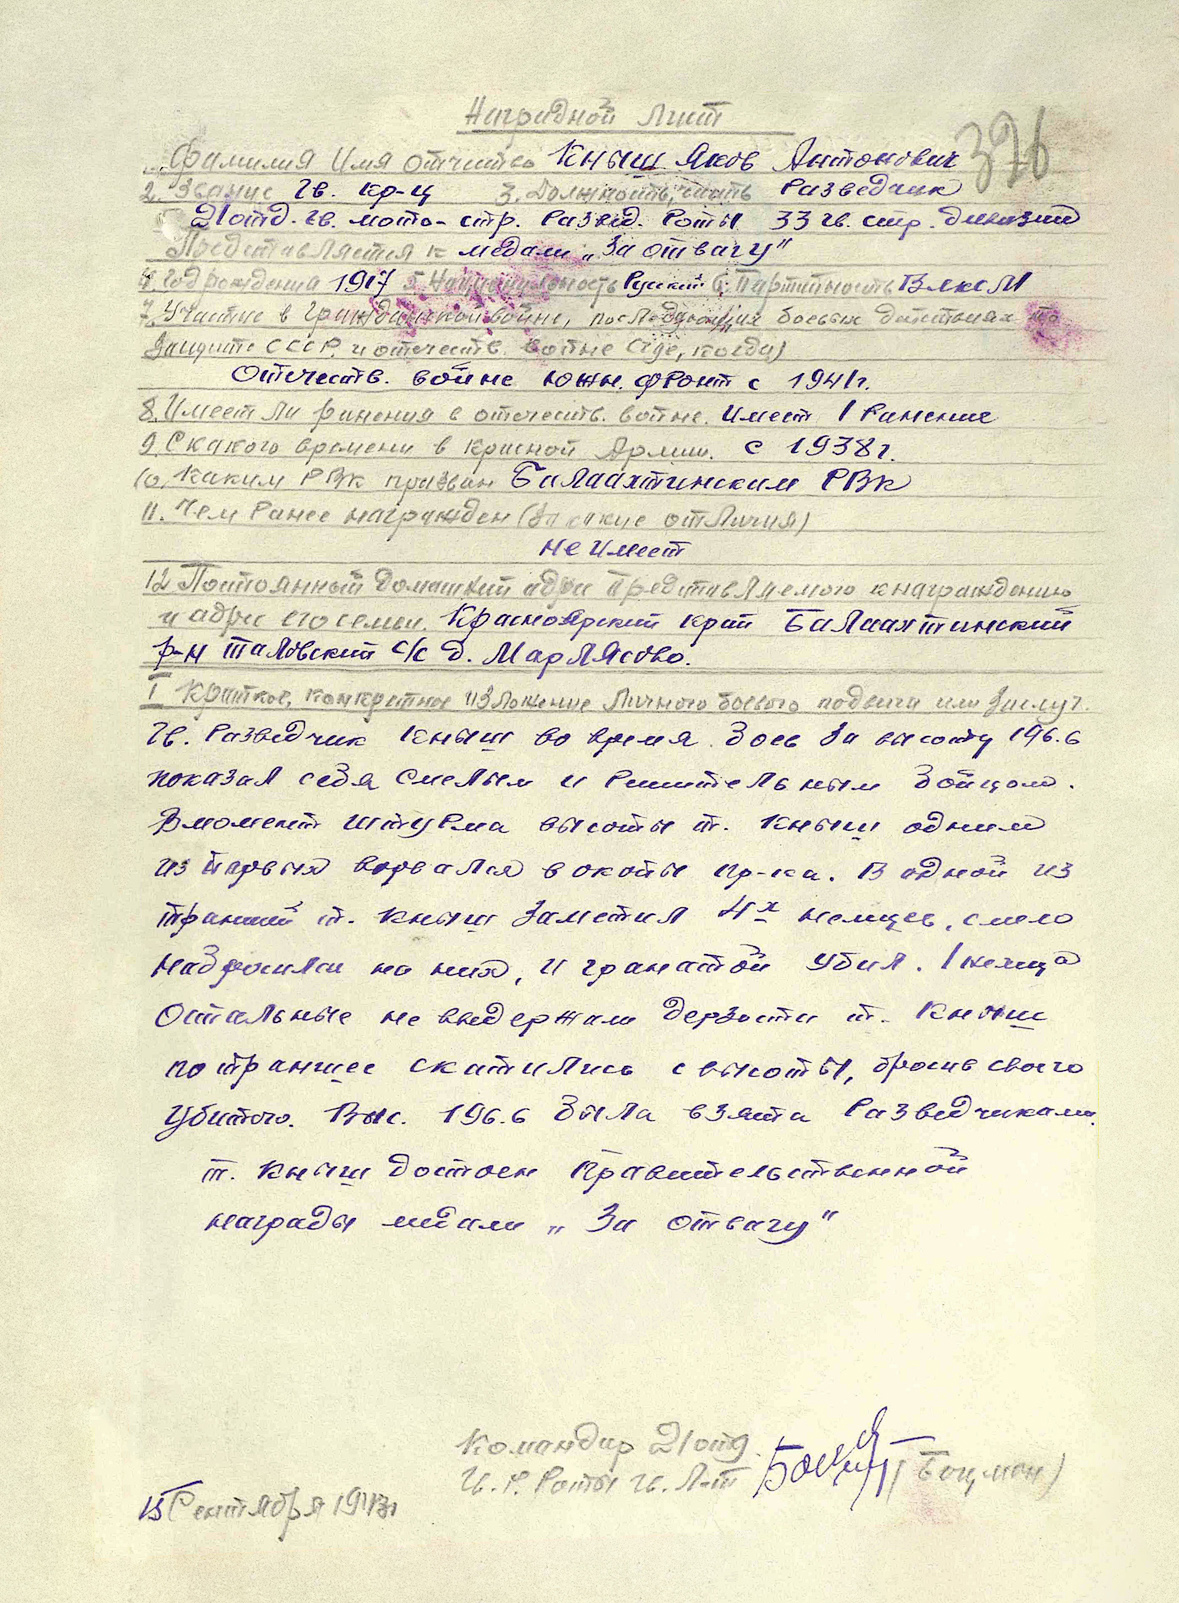 Наградной Лист
376
Фамилия Имя Отчество Кныш Яков Антонович
2. Звание Гв. кр-ц 3. Должность, часть Разведчик
21 отд. гв. мото-стр. развед. роты 33 гв. стр. дивизии
Представляется к медали „За отвагу"
4. Год рождения 1917 5 Национальность Русский 6 Партийность ВЛКСМ
7. Участие в Гражданской войне, последующих боевых действиях по
Защите СССР и отечеств. войне (где, когда)
Отечеств. войне Южн. фронт с 1941г.
8. Имеет ли ранения в отечеств. войне. Имеет 1 Ранение
9. С какого времени в Красной Армии. с 1938г.
10. Каким РВК призван Балаахтинским РВК
11. Чем Ранее награжден (за какие отличия)
Не имеет
12 Постоянный Домашний адрес Представляемого к награждению
и адрес его семьи. Красноярский край Балаахтинский
р-н Таловский с/с д. Марлясово.
I Краткое, конкретное изложение Личного боевого подвига или Заслуг.
Гв. Разведчик Кныш во время боев за высоту 196.6
показал себя смелым и решительным бойцом.
В момент штурма высоты т. Кныш одним
из первых ворвался в окопы пр-ка. В одной из
траншей т. Кныш заметил 4х немцев, смело
набросился на них, и гранатой убил 1 немца
Остальные не выдержали дерзости т. Кныш
по траншее скатились с высоты, бросив своего
убитого. Выс. 196.6 была взята Разведчиками.
т. Кныш достоен Правительственной
награды медали „За отвагу"
Командир 21 отд.
Гв. Роты Гв. Л-т (Боцман)
15 Сентября 1943г